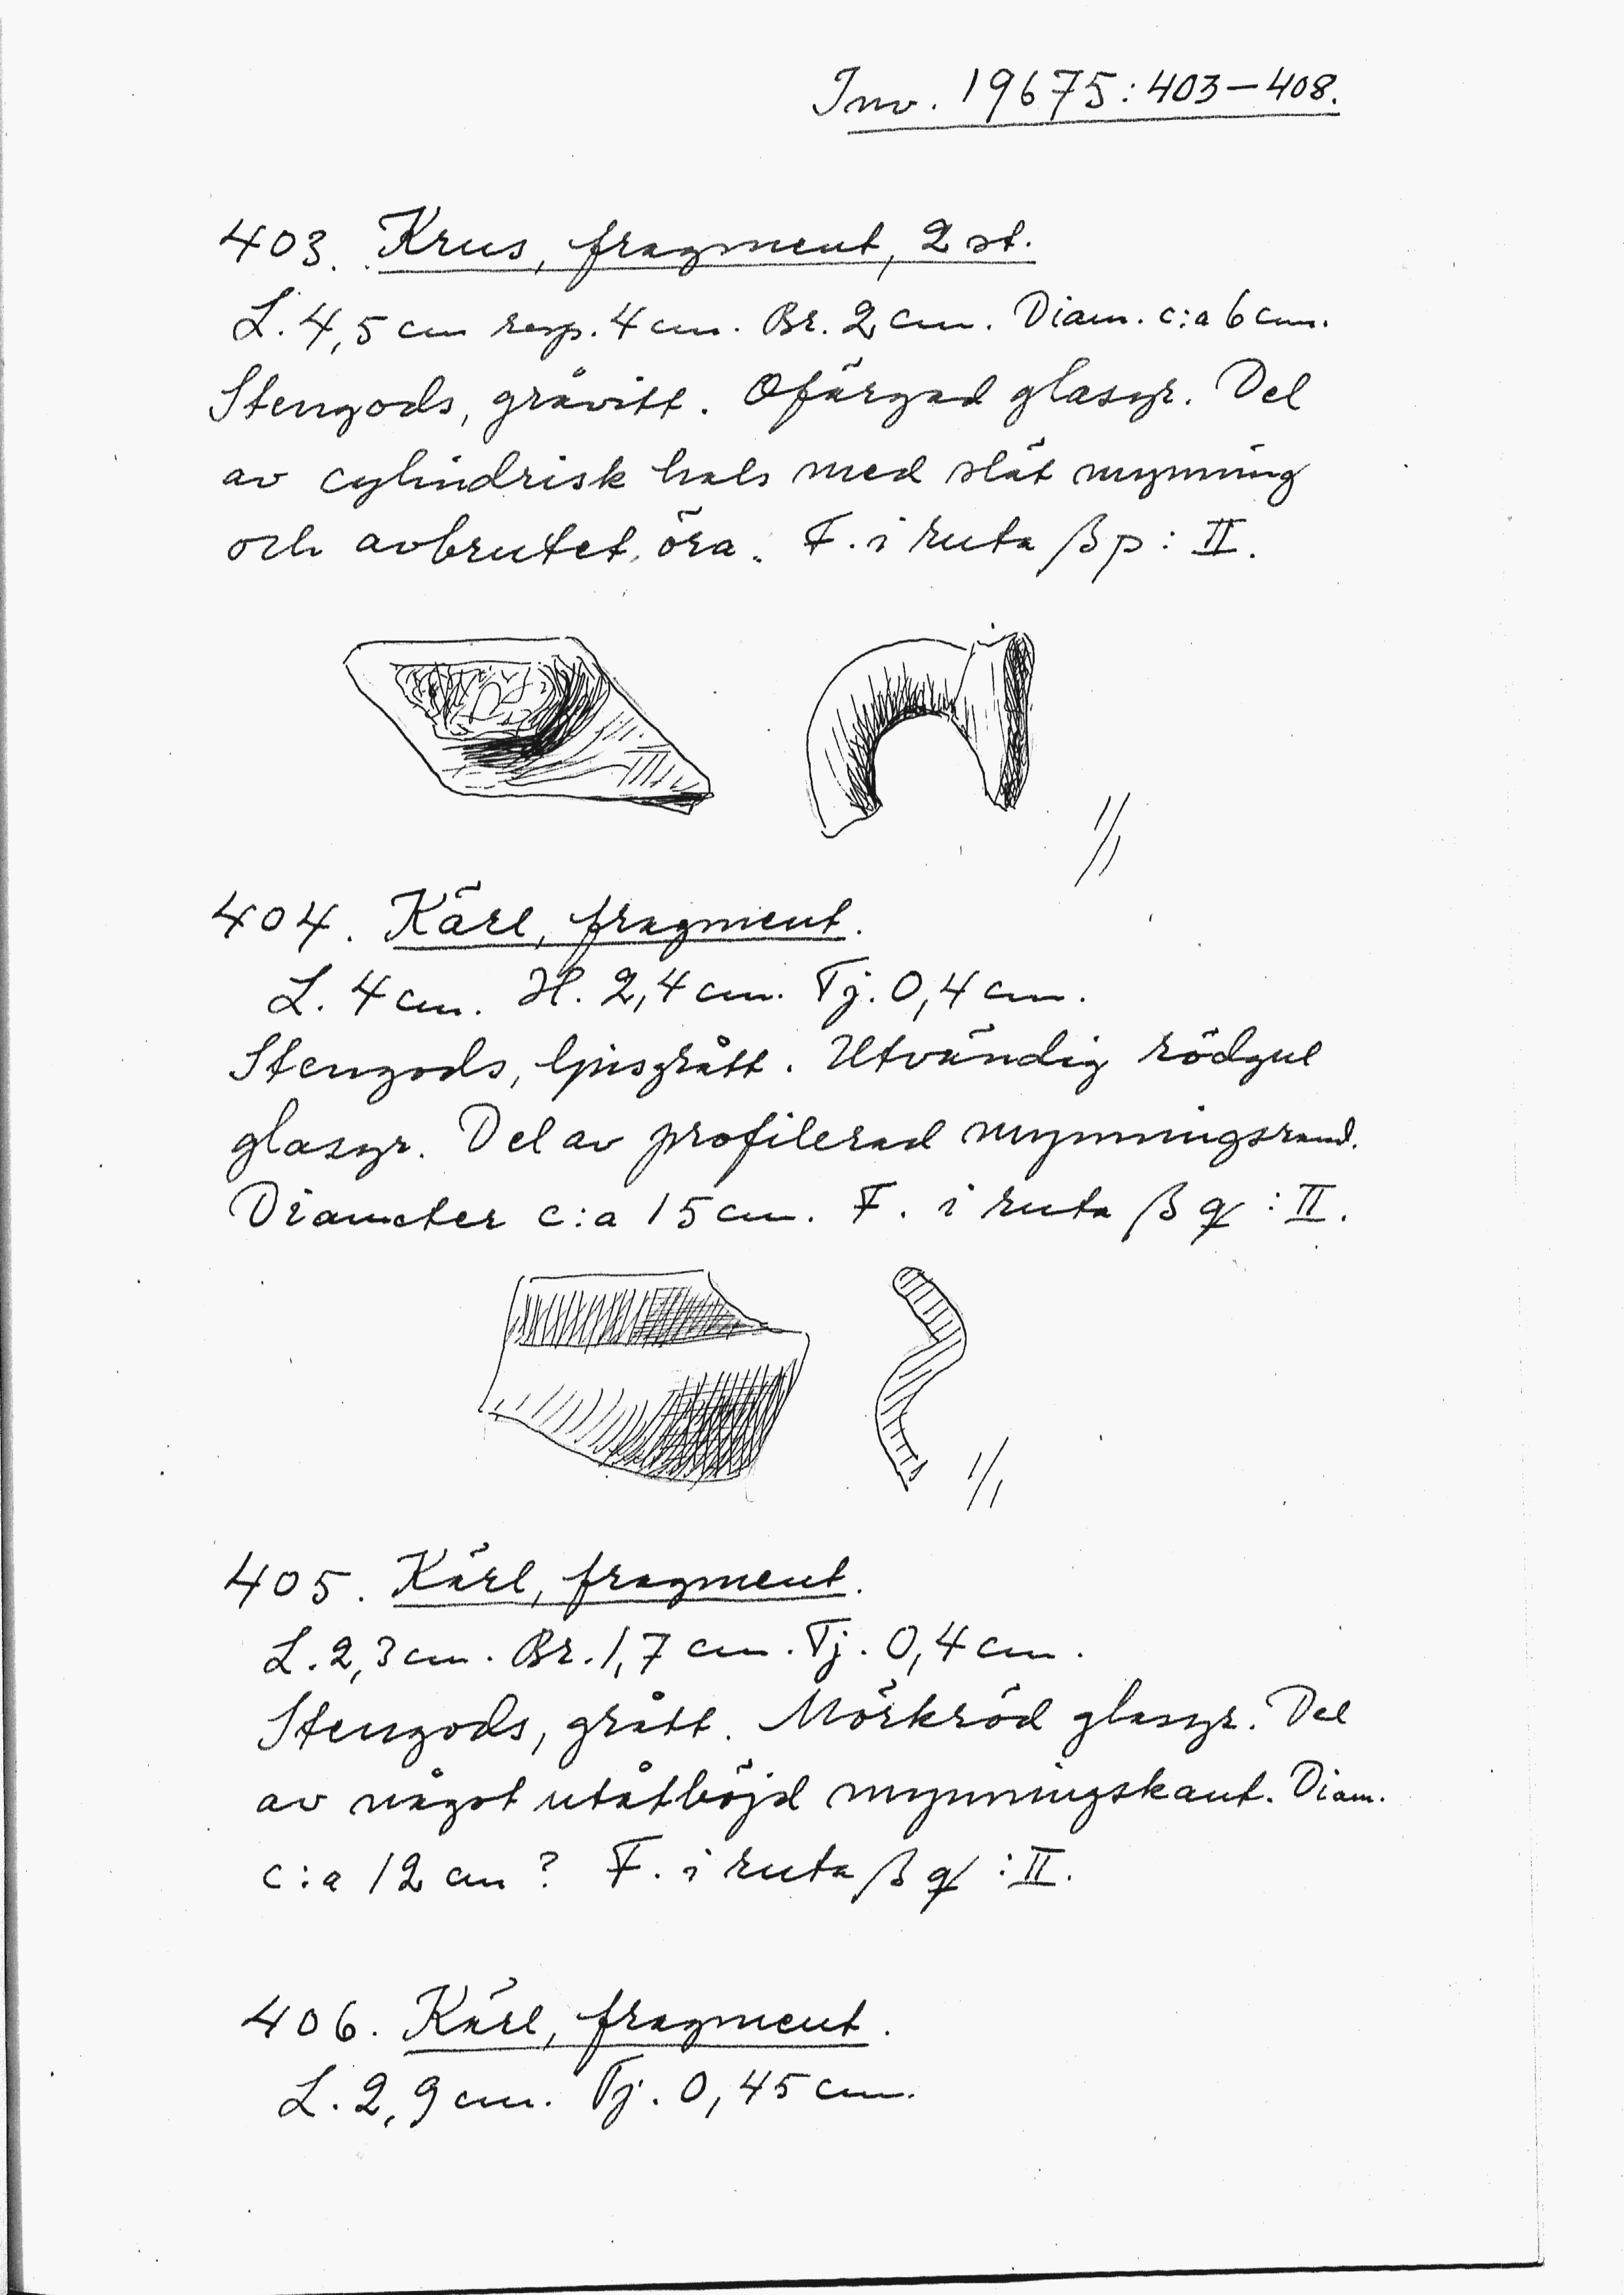 Inv. 19675:403–408.
403. Krus, fragment, 2 st.
L. 4,5 cm resp. 4 cm. Br. 2 cm. Diam. c:a 6 cm.
Stengods, gråvitt. Ofärgad glasyr. Del
av cylindrisk hals med slät mynning
och avbrutet öra. F. i ruta ßp:II.
1/1
404. Kärl, fragment.
L. 4 cm. H. 2,4 cm. Tj. 0,4 cm.
Stengods, ljusgrått. Utvändig rödgul
glasyr. Del av profilerad mynningsrand.
Diameter c:a 15 cm. F. i ruta ßq:II.
1/1
405. Kärl, fragment.
L. 2,3 cm. Br. 1,7 cm. Tj. 0,4 cm.
Stengods, grått. Mörkröd glasyr. Del
av något utåtböjd mynningskant. Diam.
c:a 12 cm? F. i ruta ßq:II.
406. Kärl, fragment.
L. 2,9 cm. Tj. 0,45 cm.